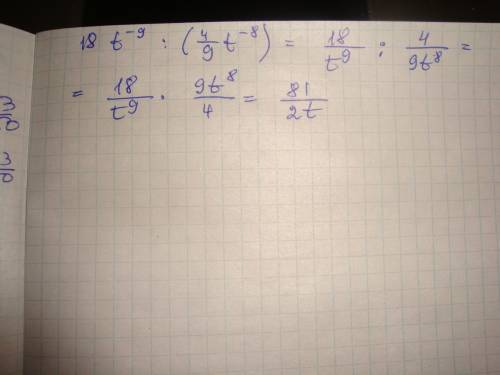 18 t⁻⁹ : (4/9 t⁻⁸) = 18/t⁹ : 4/9t⁸ =
= 18/t⁹ · 9t⁸/4 = 81/2t
3/0
3/0